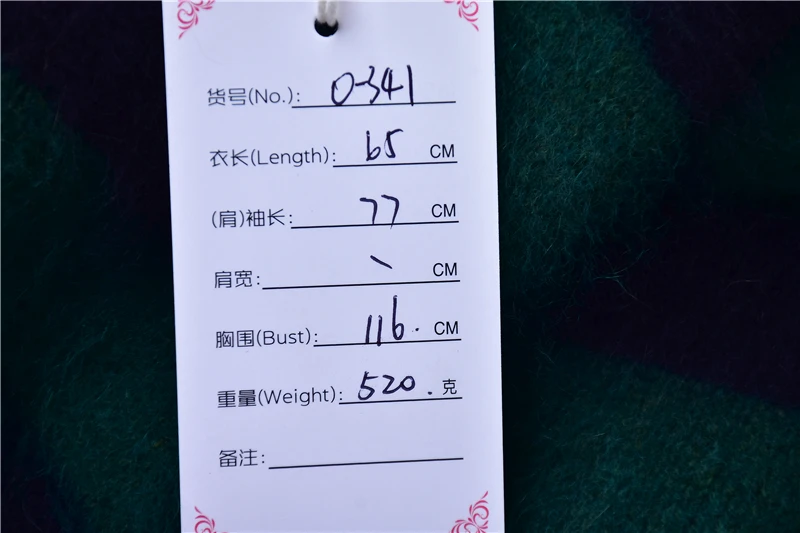 货号(No.): 0-341
衣长(Length): 65 CM
(肩)袖长: 77 CM
肩宽: \ CM
胸围(Bust): 116. CM
重量(Weight): 520 .克
备注: